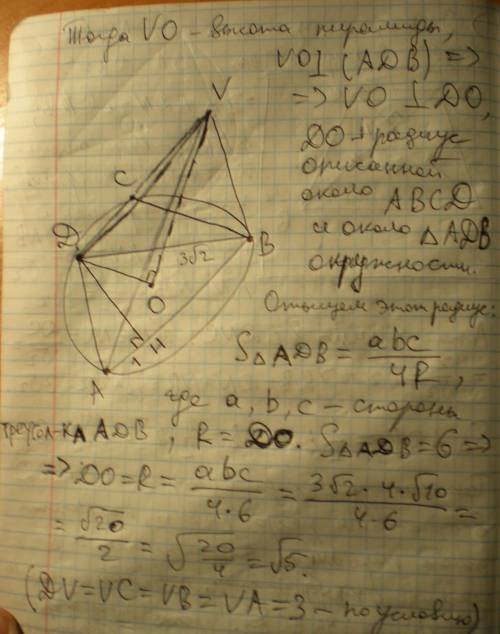 Тогда VO - высота пирамиды,
VO⊥(ADB) =>
=> VO ⊥ DO,
DO - радиус
описанной
около ABCD
и около △ADB
окружности.
V
C
D
B
3√2
O
H
A
Отыщем этот радиус:
S△ADB = abc/4R,
где a, b, c - стороны
треугол-ка ADB, R = DO. S△ADB = 6 =>
=> DO = R = abc/4·6 = 3√2·4·√10/4·6 =
= √20/2 = √20/4 = √5.
(DV = VC = VB = VA = 3 - по условию)